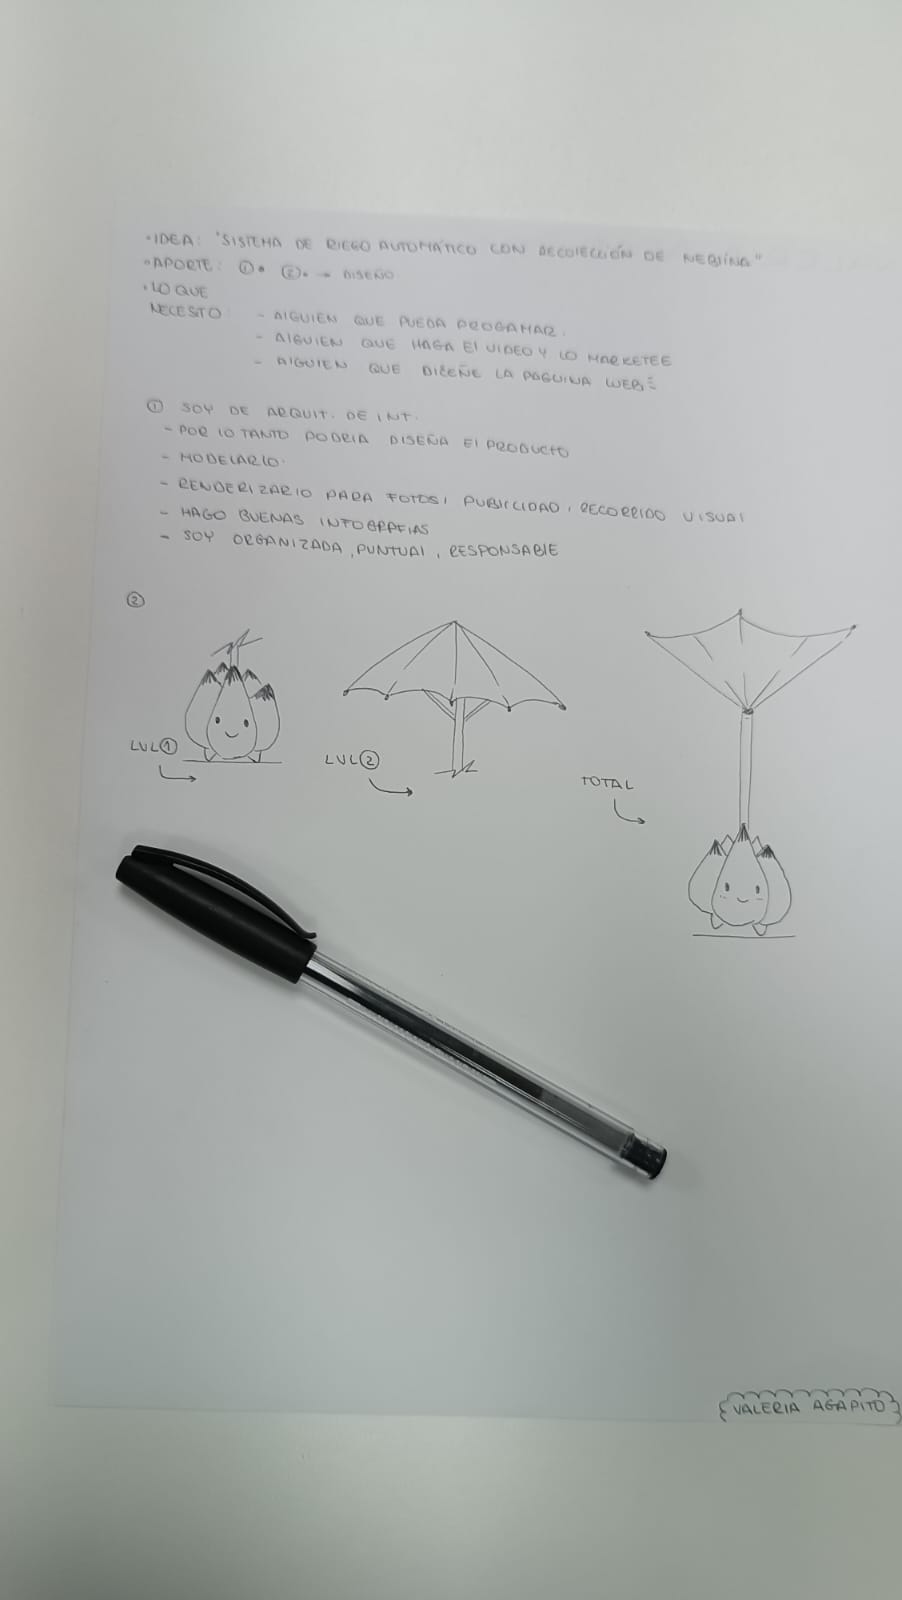 • IDEA: "SISTEMA DE RIEGO AUTOMÁTICO CON RECOLECCIÓN DE NEBLINA"
• APORTE: ①• ②• → DISEÑO
• LO QUE
NECESITO: - ALGUIEN QUE PUEDA PROGAMAR.
- ALGUIEN QUE HAGA El VIDEO Y LO MARKETEE
- ALGUIEN QUE DISEÑE LA PÁGUINA WEB
① SOY DE ARQUIT. DE INT.
- POR lO TANTO PODRIA DISEÑA El PRODUCTO
- MODELARlO.
- RENDERIZARlO PARA FOTOS, PUBlICIDAD, RECORRIDO VISUAl
- HAGO BUENAS INFOGRAFIAS
- SOY ORGANIZADA, PUNTUAl, RESPONSABlE
②
LVL ①
LVL ②
TOTAL
VALERIA AGAPITO